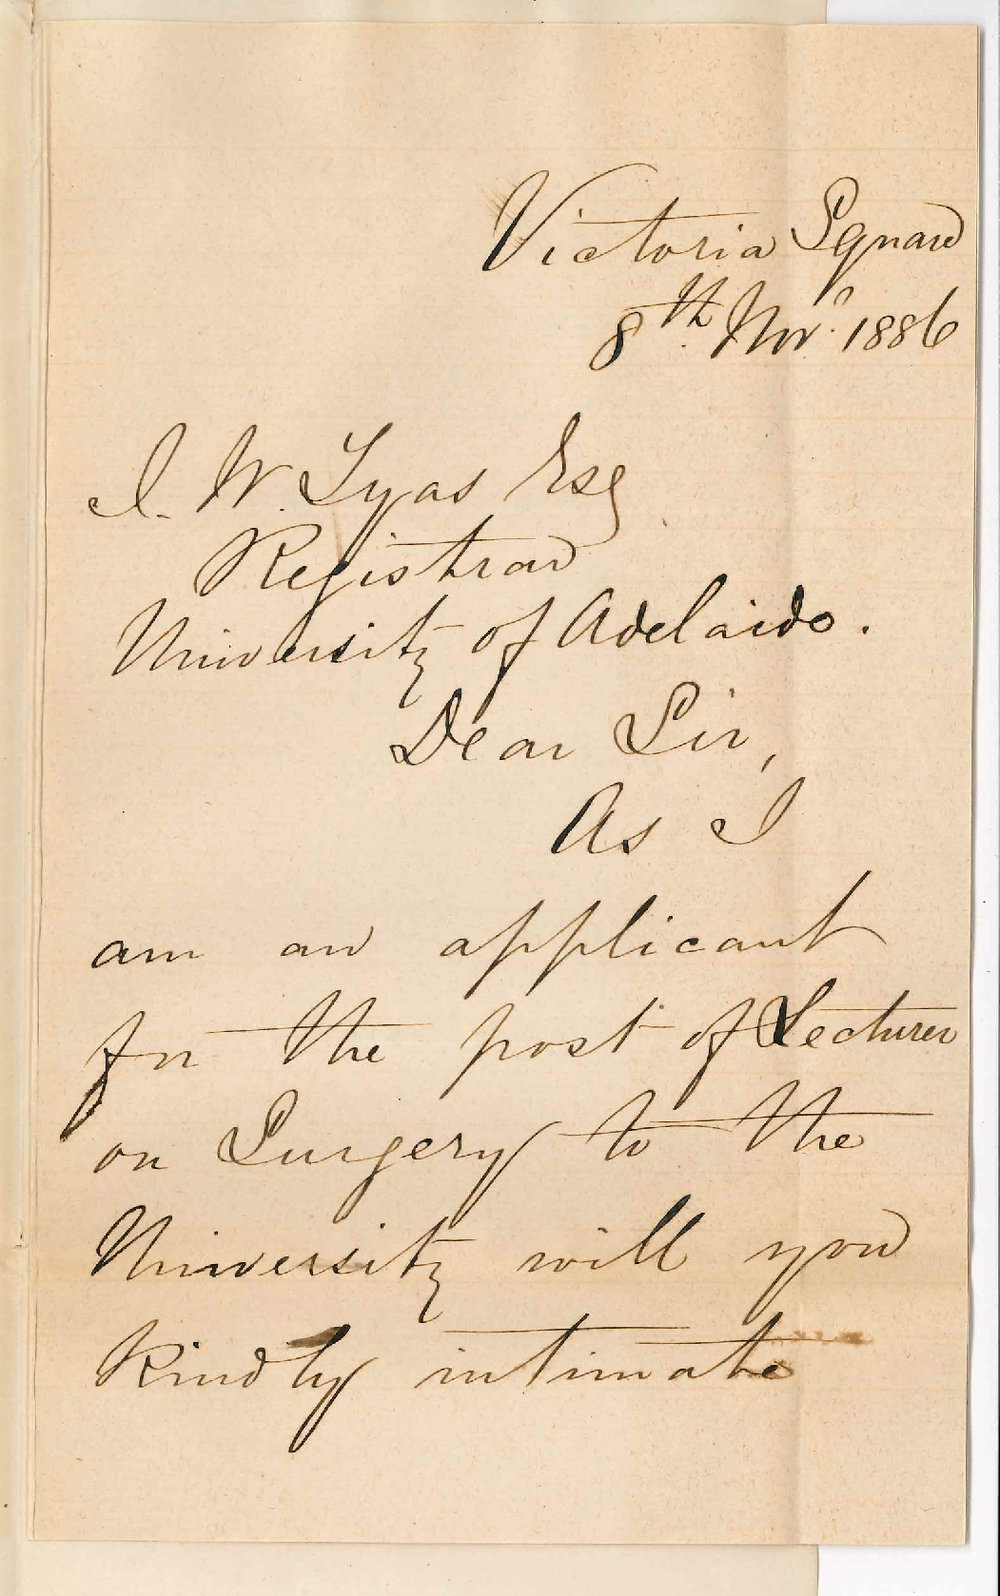 Victoria Square
8th Novr. 1886
J. W. Tyas Esq
Registrar
University of Adelaide.
Dear Sir,
As I
am an applicant
for the post of Lecturer
on Surgery to the
University will you
Kindly intimate